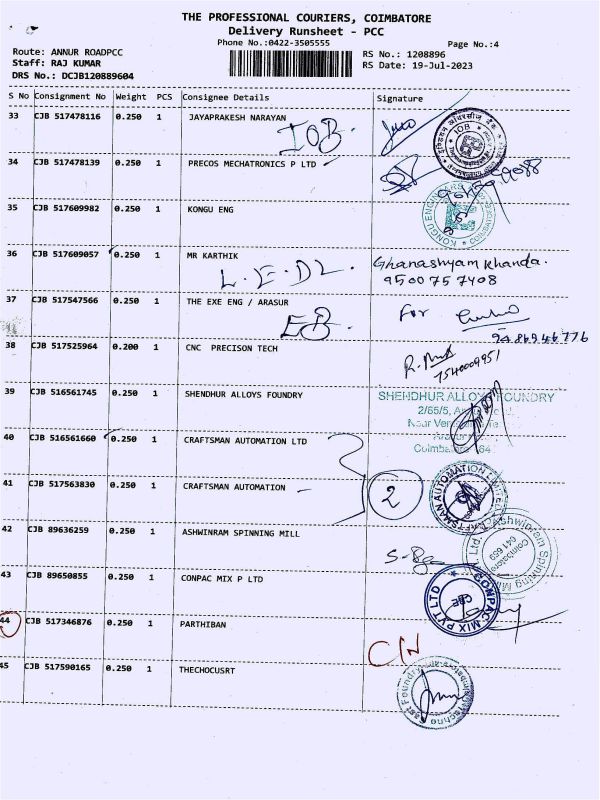 THE PROFESSIONAL COURIERS, COIMBATORE
Delivery Runsheet - PCC
Phone No.:0422-3505555
Page No.:4
Route: ANNUR ROADPCC
RS No.: 1208896
Staff: RAJ KUMAR
RS Date: 19-Jul-2023
DRS No.: DCJB120889604
S No Consignment No Weight PCS Consignee Details Signature
33 CJB 517478116 0.250 1 JAYAPRAKESH NARAYAN
IOB.
IOB
34 CJB 517478139 0.250 1 PRECOS MECHATRONICS P LTD
35 CJB 517609982 0.250 1 KONGU ENG
36 CJB 517609057 0.250 1 MR KARTHIK
L.E.DL. Ghanashyam Khanda.
9500757408
37 CJB 517547566 0.250 1 THE EXE ENG / ARASUR
EB. For
9486946776
38 CJB 517525964 0.200 1 CNC PRECISON TECH
7540009951
39 CJB 516561745 0.250 1 SHENDHUR ALLOYS FOUNDRY
SHENDHUR ALLOY FOUNDRY
2/65/5,
40 CJB 516561660 0.250 1 CRAFTSMAN AUTOMATION LTD
41 CJB 517563830 0.250 1 CRAFTSMAN AUTOMATION
2
CRAFTSMAN AUTOMATION LIMITED
42 CJB 89636259 0.250 1 ASHWINRAM SPINNING MILL
Ashwinram Spinning Mill
Coimbatore
641 659
43 CJB 89650855 0.250 1 CONPAC MIX P LTD
CONPAC MIX PVT LTD
CBE
44 CJB 517346876 0.250 1 PARTHIBAN
C/N
45 CJB 517590165 0.250 1 THECHOCUSRT